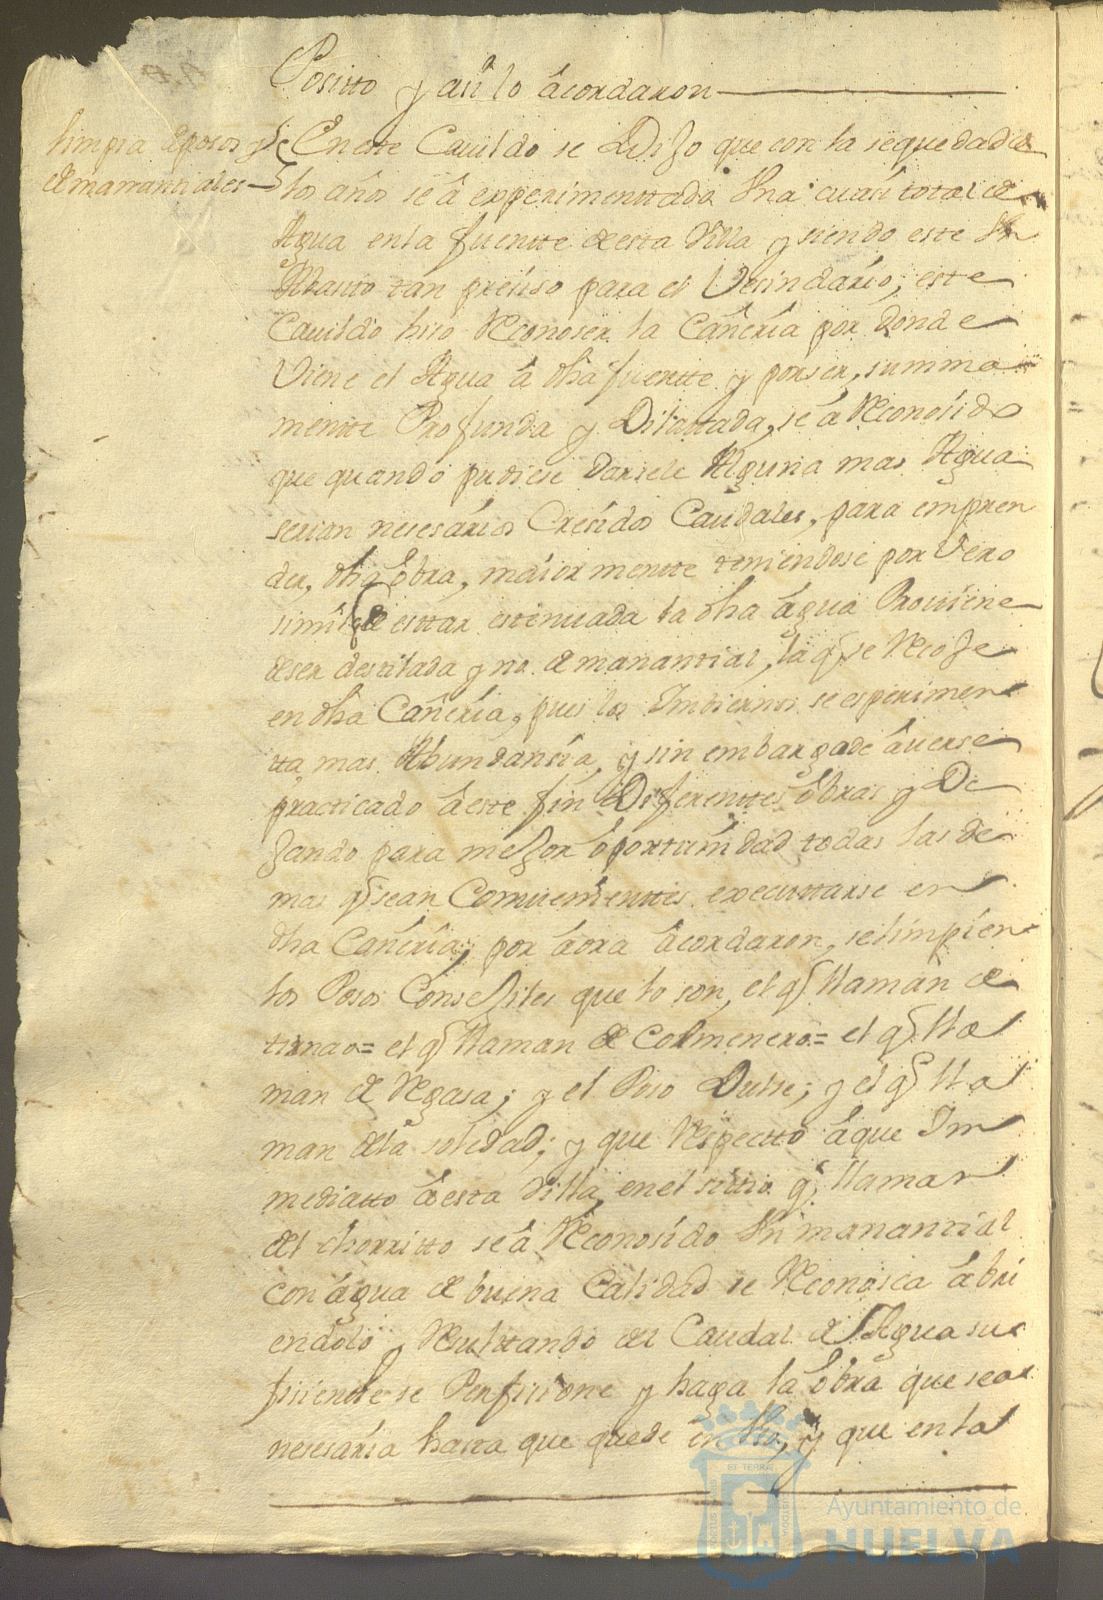 Positto y asi lo âcordaron
limpia de posos y
de manantiales
En este Cavildo se Dijo que con la sequedad de
los años se â experimentado Una cuasi total de
Agua en la fuentte de esta Villa y siendo este
Abasto tan presiso para el Vesindario, este
Cavildo hiso Reconoser la Cañeria por donde
Viene el Agua â dha fuentte y por ser, summa
mente Profunda y Dilattada, se â Reconosido
que quando pudiese darsele Alguna mas Agua
serian nesesarios Cresidos Caudales, para empren
der, dha ôbra, maiormentte teniendose por Vero
simil esttar estenuada la dha âgua Proviene
de ser destilada y no de manantial, la q se Recoje
en dha Cañeria, pues los Imbiernos se esperimen
tta mas Abundansia, y sin embargo de âverse
practicado â este fin Diferenttes ôbras y De
jando para mejor ôportunidad todas las de
mas q sean Comvenienttes executtarse en
dha Cañeria; por âora âcordaron, se limpien
los Posos Consejiles que lo son, el q llaman de
tinao= el q llaman de Colmenero= el q lla
man de Regasa; y el Poso Dulse; y el q lla
man de la soledad; y que Respectto â que Im
mediatto â esta Villa, en el sittio q llaman
del chorritto se â Reconosido Un manantial
con âgua de buena Calidad se Reconosca âbri
endolo y Resulttando del Caudal de Agua su
fisientte se Perfisione y haga la ôbra que sea
nesesaria hasta que quede en Uso, y que en la
Ayuntamiento de
HUELVA